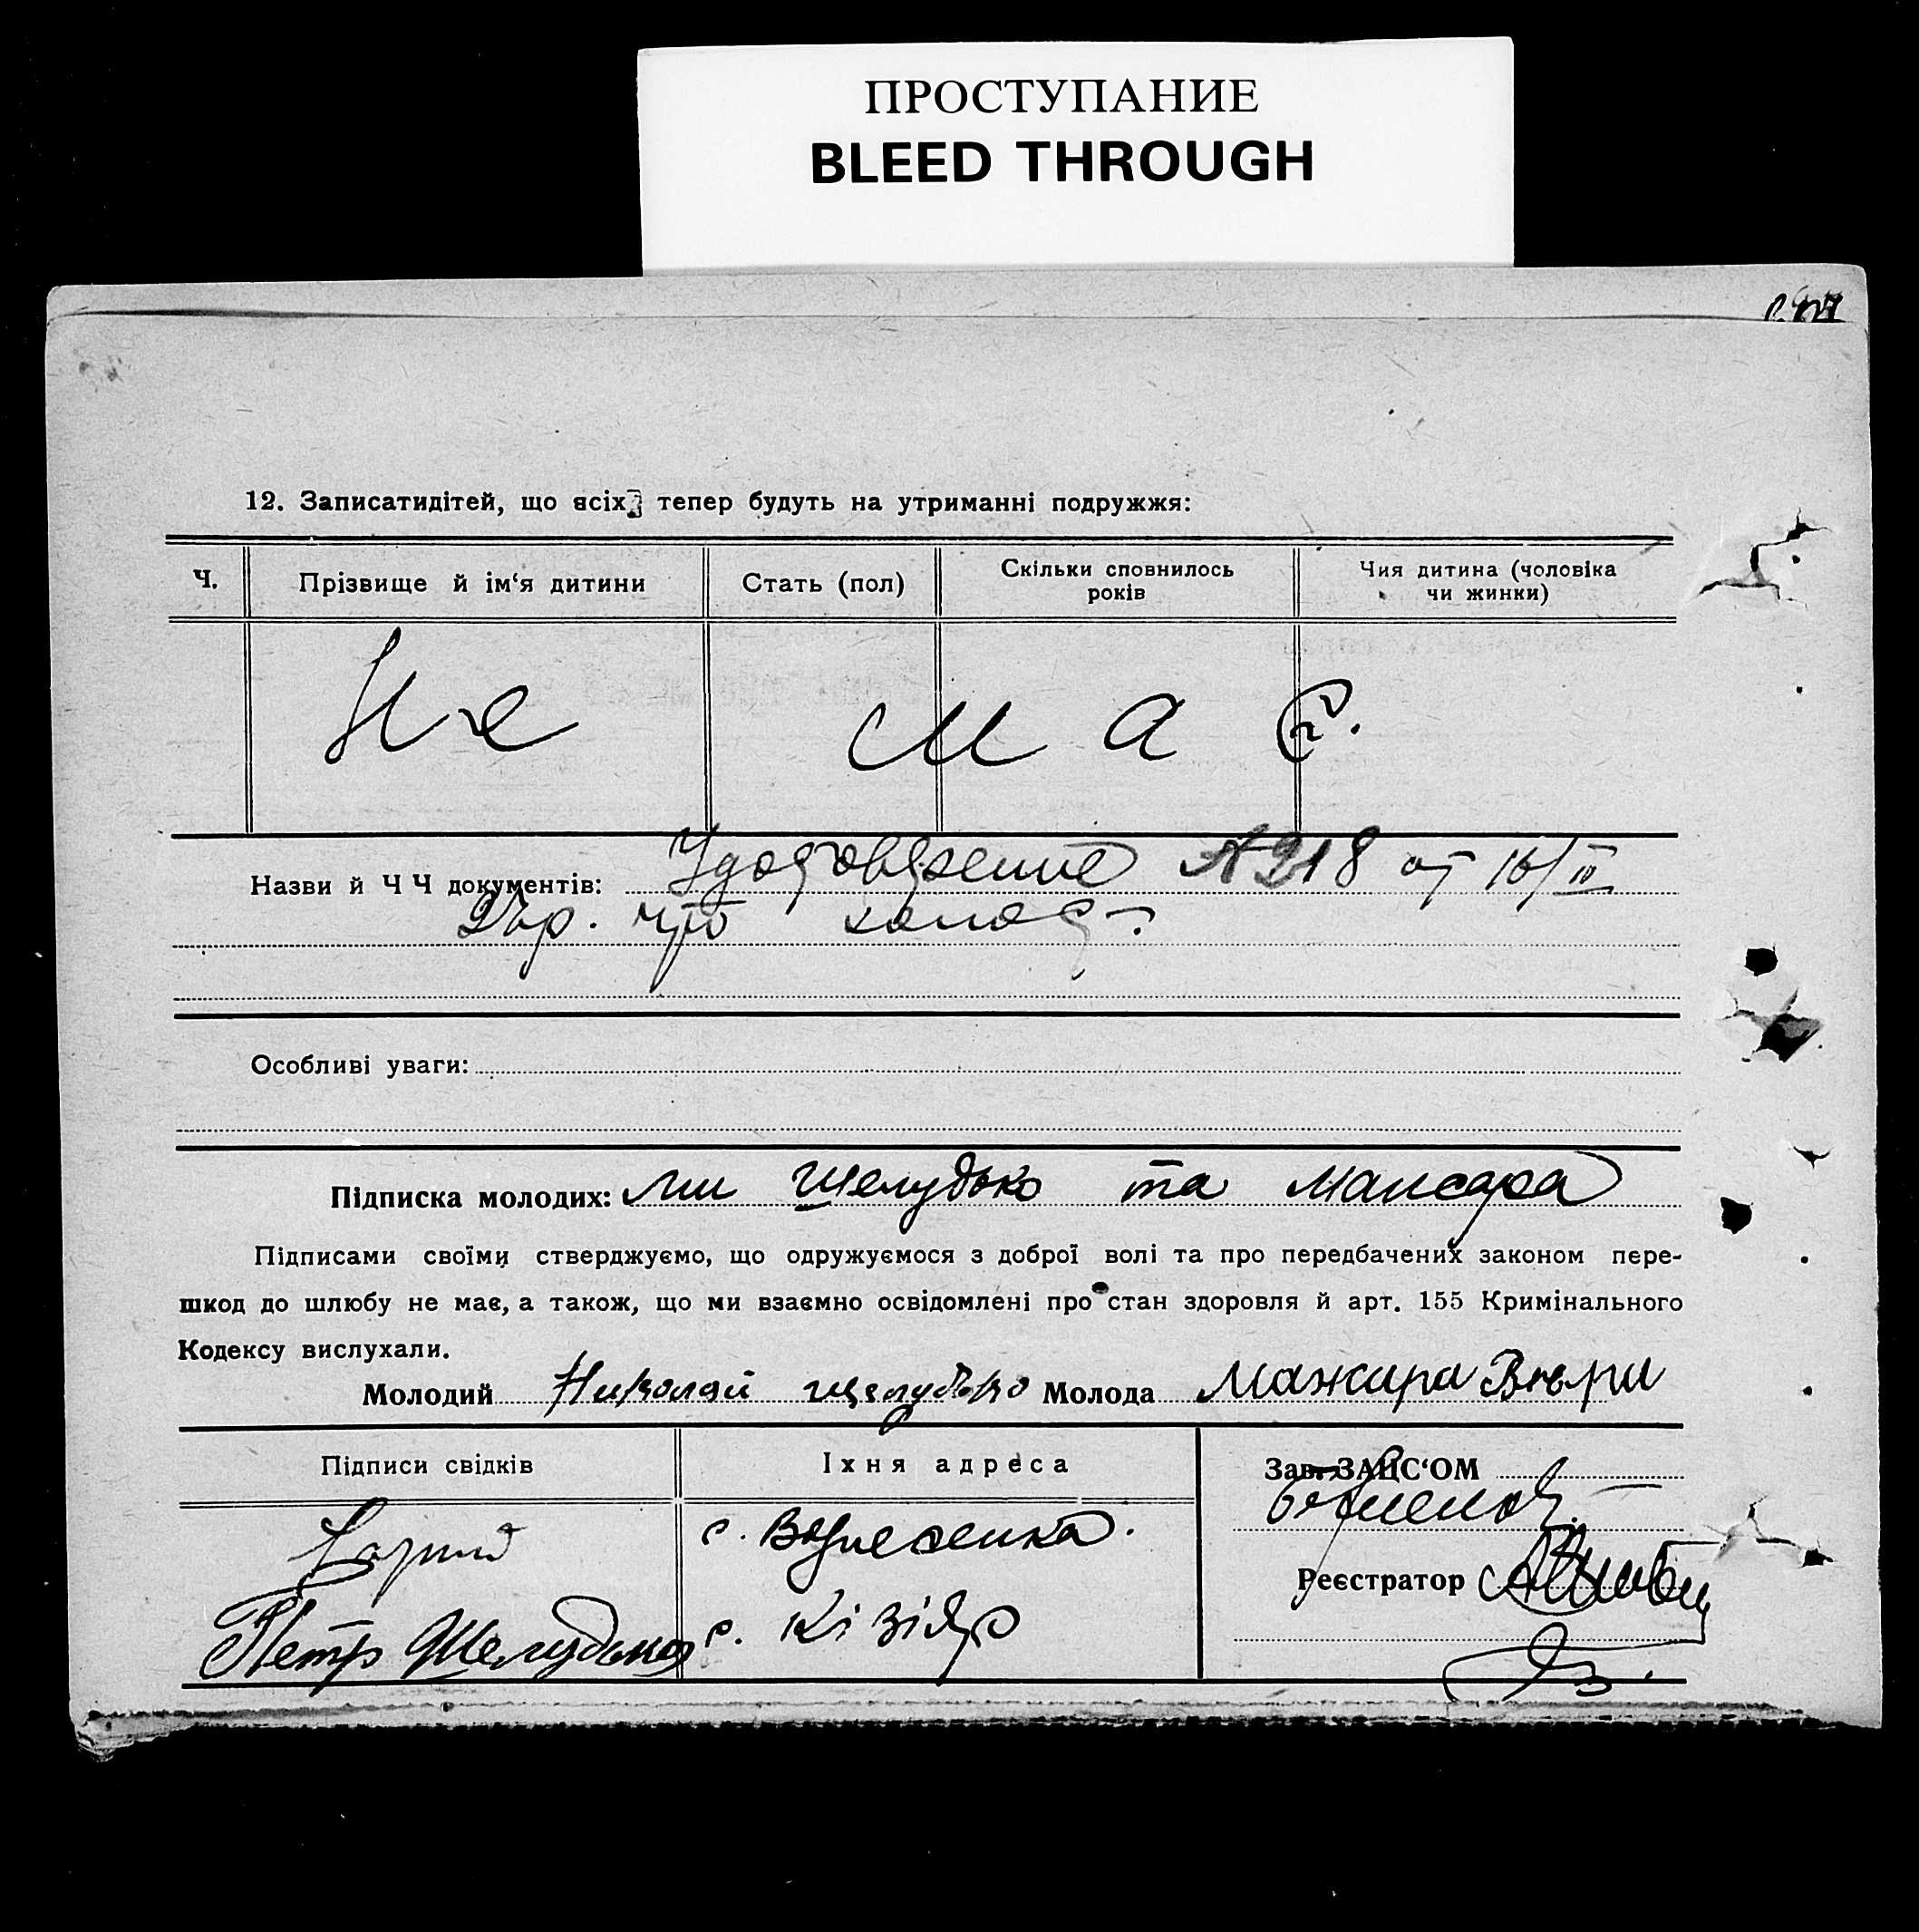 ПРОСТУПАНИЕ
BLEED THROUGH
12. Записатидітей, що всіх тепер будуть на утриманні подружжя:
Ч. Прізвище й ім‘я дитини Стать (пол) Скільки сповнилось років Чия дитина (чоловіка чи жинки)
Не має.
Назви й Ч Ч документів: Удостоверение № 218 от 16/III
что холост.
Особливі уваги:
Підписка молодих: Ми Шелудько та Мажара
Підписами своїми стверджуємо, що одружуємося з доброї волі та про передбачених законом пере-
шкод до шлюбу не має, а також, що ми взаємно освідомлені про стан здоровля й арт. 155 Кримінального
Кодексу вислухали.
Молодий Николай Щелудько Молода Мажира Вѣри
Підписи свідків Їхня адреса Зав. ЗАЦС‘ОМ
с. Вознесенка.
Реєстратор
Петр Шелудько с. Кізіяр